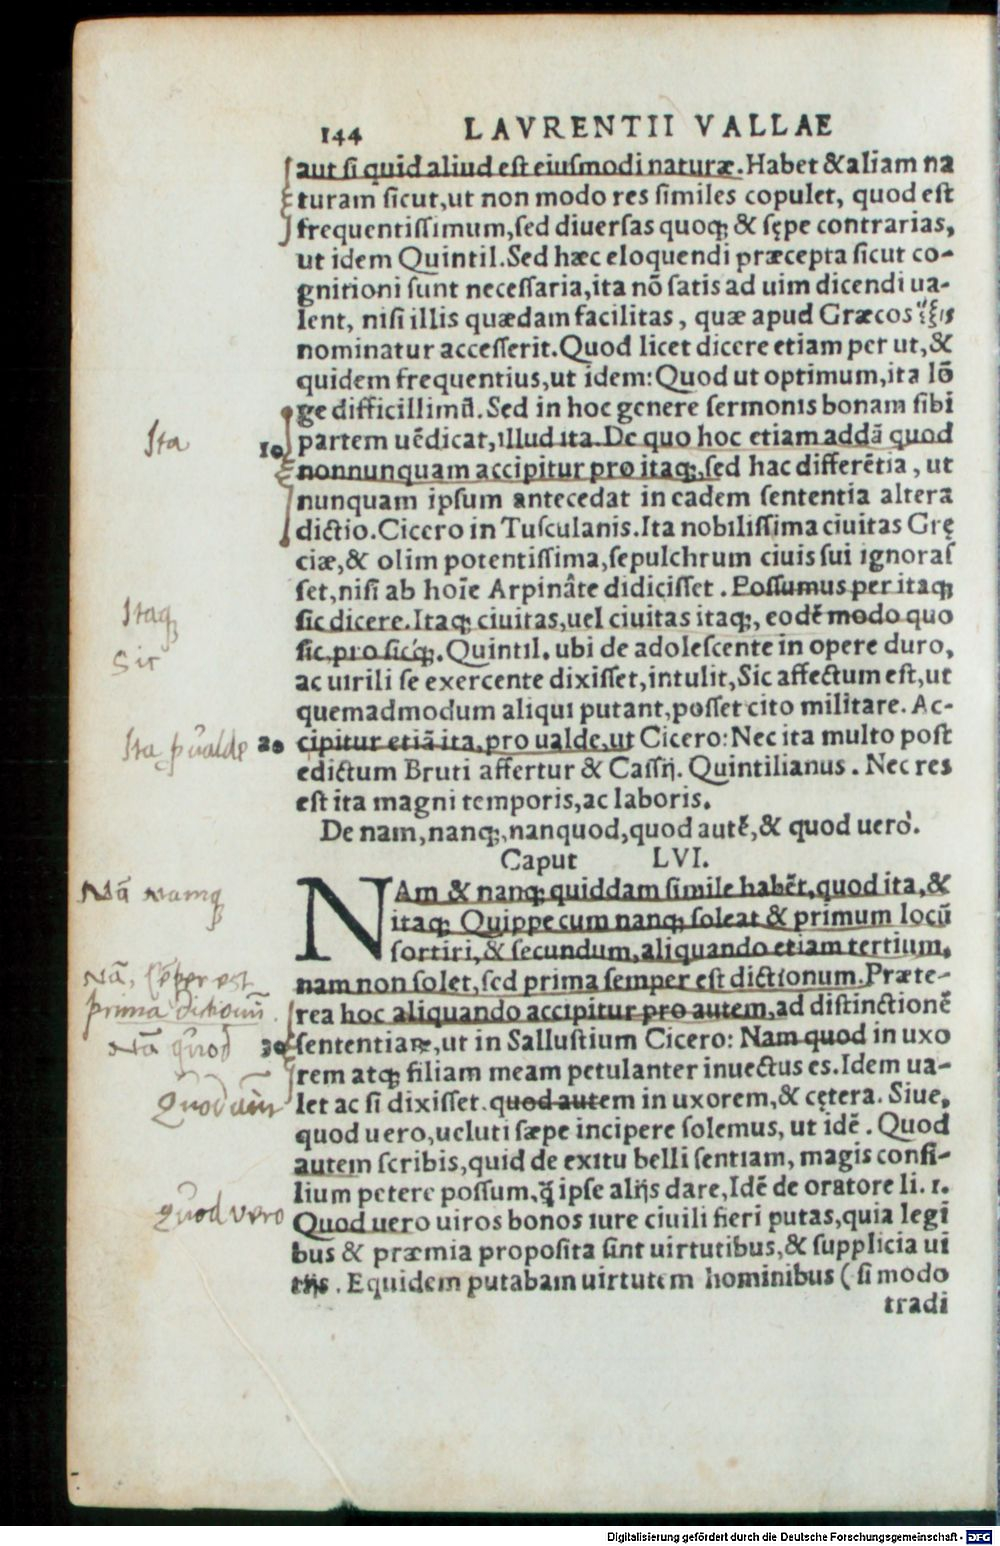 144 LAVRENTII VALLAE
aut si quid aliud est eiusmodi naturæ. Habet & aliam na
turam sicut, ut non modo res similes copulet, quod est
frequentissimum, sed diuersas quoq; & sępe contrarias,
ut idem Quintil. Sed hæc eloquendi præcepta sicut co-
gnitioni sunt necessaria, ita nō satis ad uim dicendi ua-
lent, nisi illis quædam facilitas, quæ apud Græcos ἕξις
nominatur accesserit. Quod licet dicere etiam per ut, &
quidem frequentius, ut idem: Quod ut optimum, ita lō
ge difficillimū. Sed in hoc genere sermonis bonam sibi
Ita
10 partem uēdicat, illud ita. De quo hoc etiam addā quod
nonnunquam accipitur pro itaq;, sed hac differētia, ut
nunquam ipsum antecedat in eadem sententia altera
dictio. Cicero in Tusculanis. Ita nobilissima ciuitas Grę
ciæ, & olim potentissima, sepulchrum ciuis sui ignoras
set, nisi ab hoīe Arpinâte didicisset. Possumus per itaq;
Itaq;
sic dicere. Itaq; ciuitas, uel ciuitas itaq;, eodē modo quo
Sic
sic, pro sicq;. Quintil. ubi de adolescente in opere duro,
ac uirili se exercente dixisset, intulit, Sic affectum est, ut
quemadmodum aliqui putant, posset cito militare. Ac-
Ita p ualde
20 cipitur etiā ita, pro ualde, ut Cicero: Nec ita multo post
edictum Bruti affertur & Cassij. Quintilianus. Nec res
est ita magni temporis, ac laboris.
De nam, nanq;, nanquod, quod autē, & quod uero.
Caput LVI.
Nā namq;
NAm & nanq; quiddam simile habēt, quod ita, &
itaq; Quippe cum nanq; soleat & primum locū
sortiri, & secundum, aliquando etiam tertium,
Nā, sēper est
nam non solet, sed prima semper est dictionum. Præte-
prima dictionū.
rea hoc aliquando accipitur pro autem, ad distinctionē
Nā quod
30 sententiaꝝ, ut in Sallustium Cicero: Nam quod in uxo
rem atq; filiam meam petulanter inuectus es. Idem ua-
Quod autē
let ac si dixisset. quod autem in uxorem, & cętera. Siue,
quod uero, ueluti sæpe incipere solemus, ut idē. Quod
autem scribis, quid de exitu belli sentiam, magis consi-
lium petere possum, q̄ ipse alijs dare, Idē de oratore li. 1.
Quod vero
Quod uero uiros bonos iure ciuili fieri putas, quia legi
bus & præmia proposita sint uirtutibus, & supplicia ui
tijs. Equidem putabam uirtutem hominibus (si modo
tradi
Digitalisierung gefördert durch die Deutsche Forschungsgemeinschaft - DFG